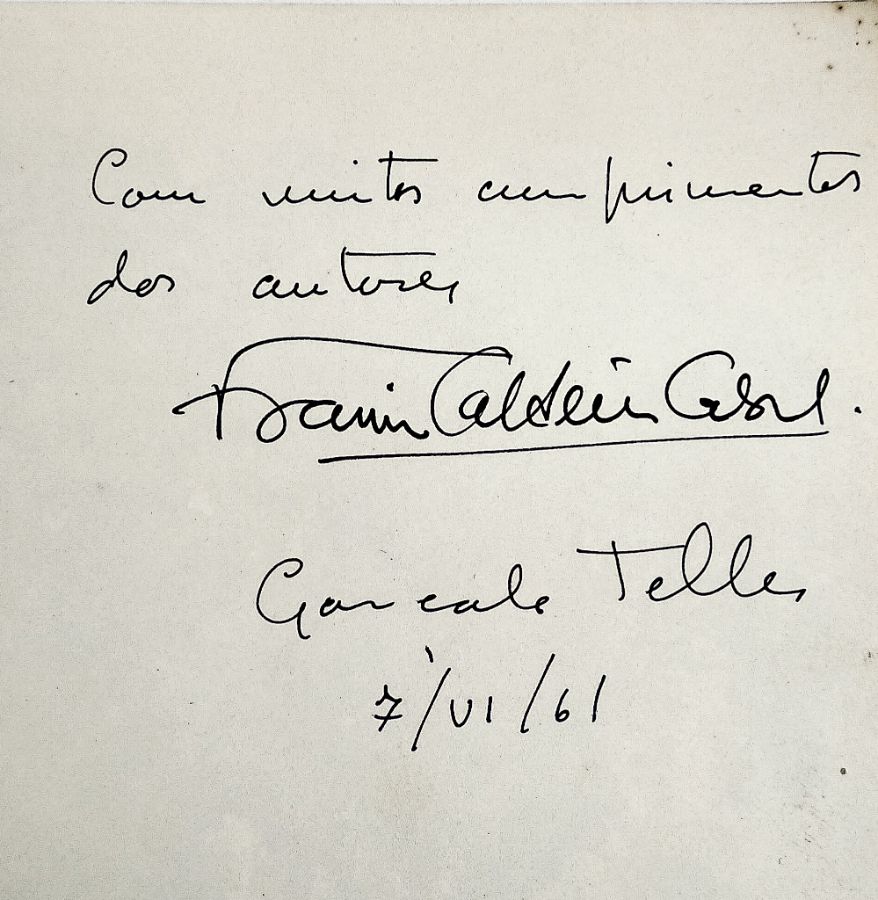 Com muitos cumprimentos
dos autores
Francisco Caldeira Cabral.
Gonçalo Telles
7/VI/61